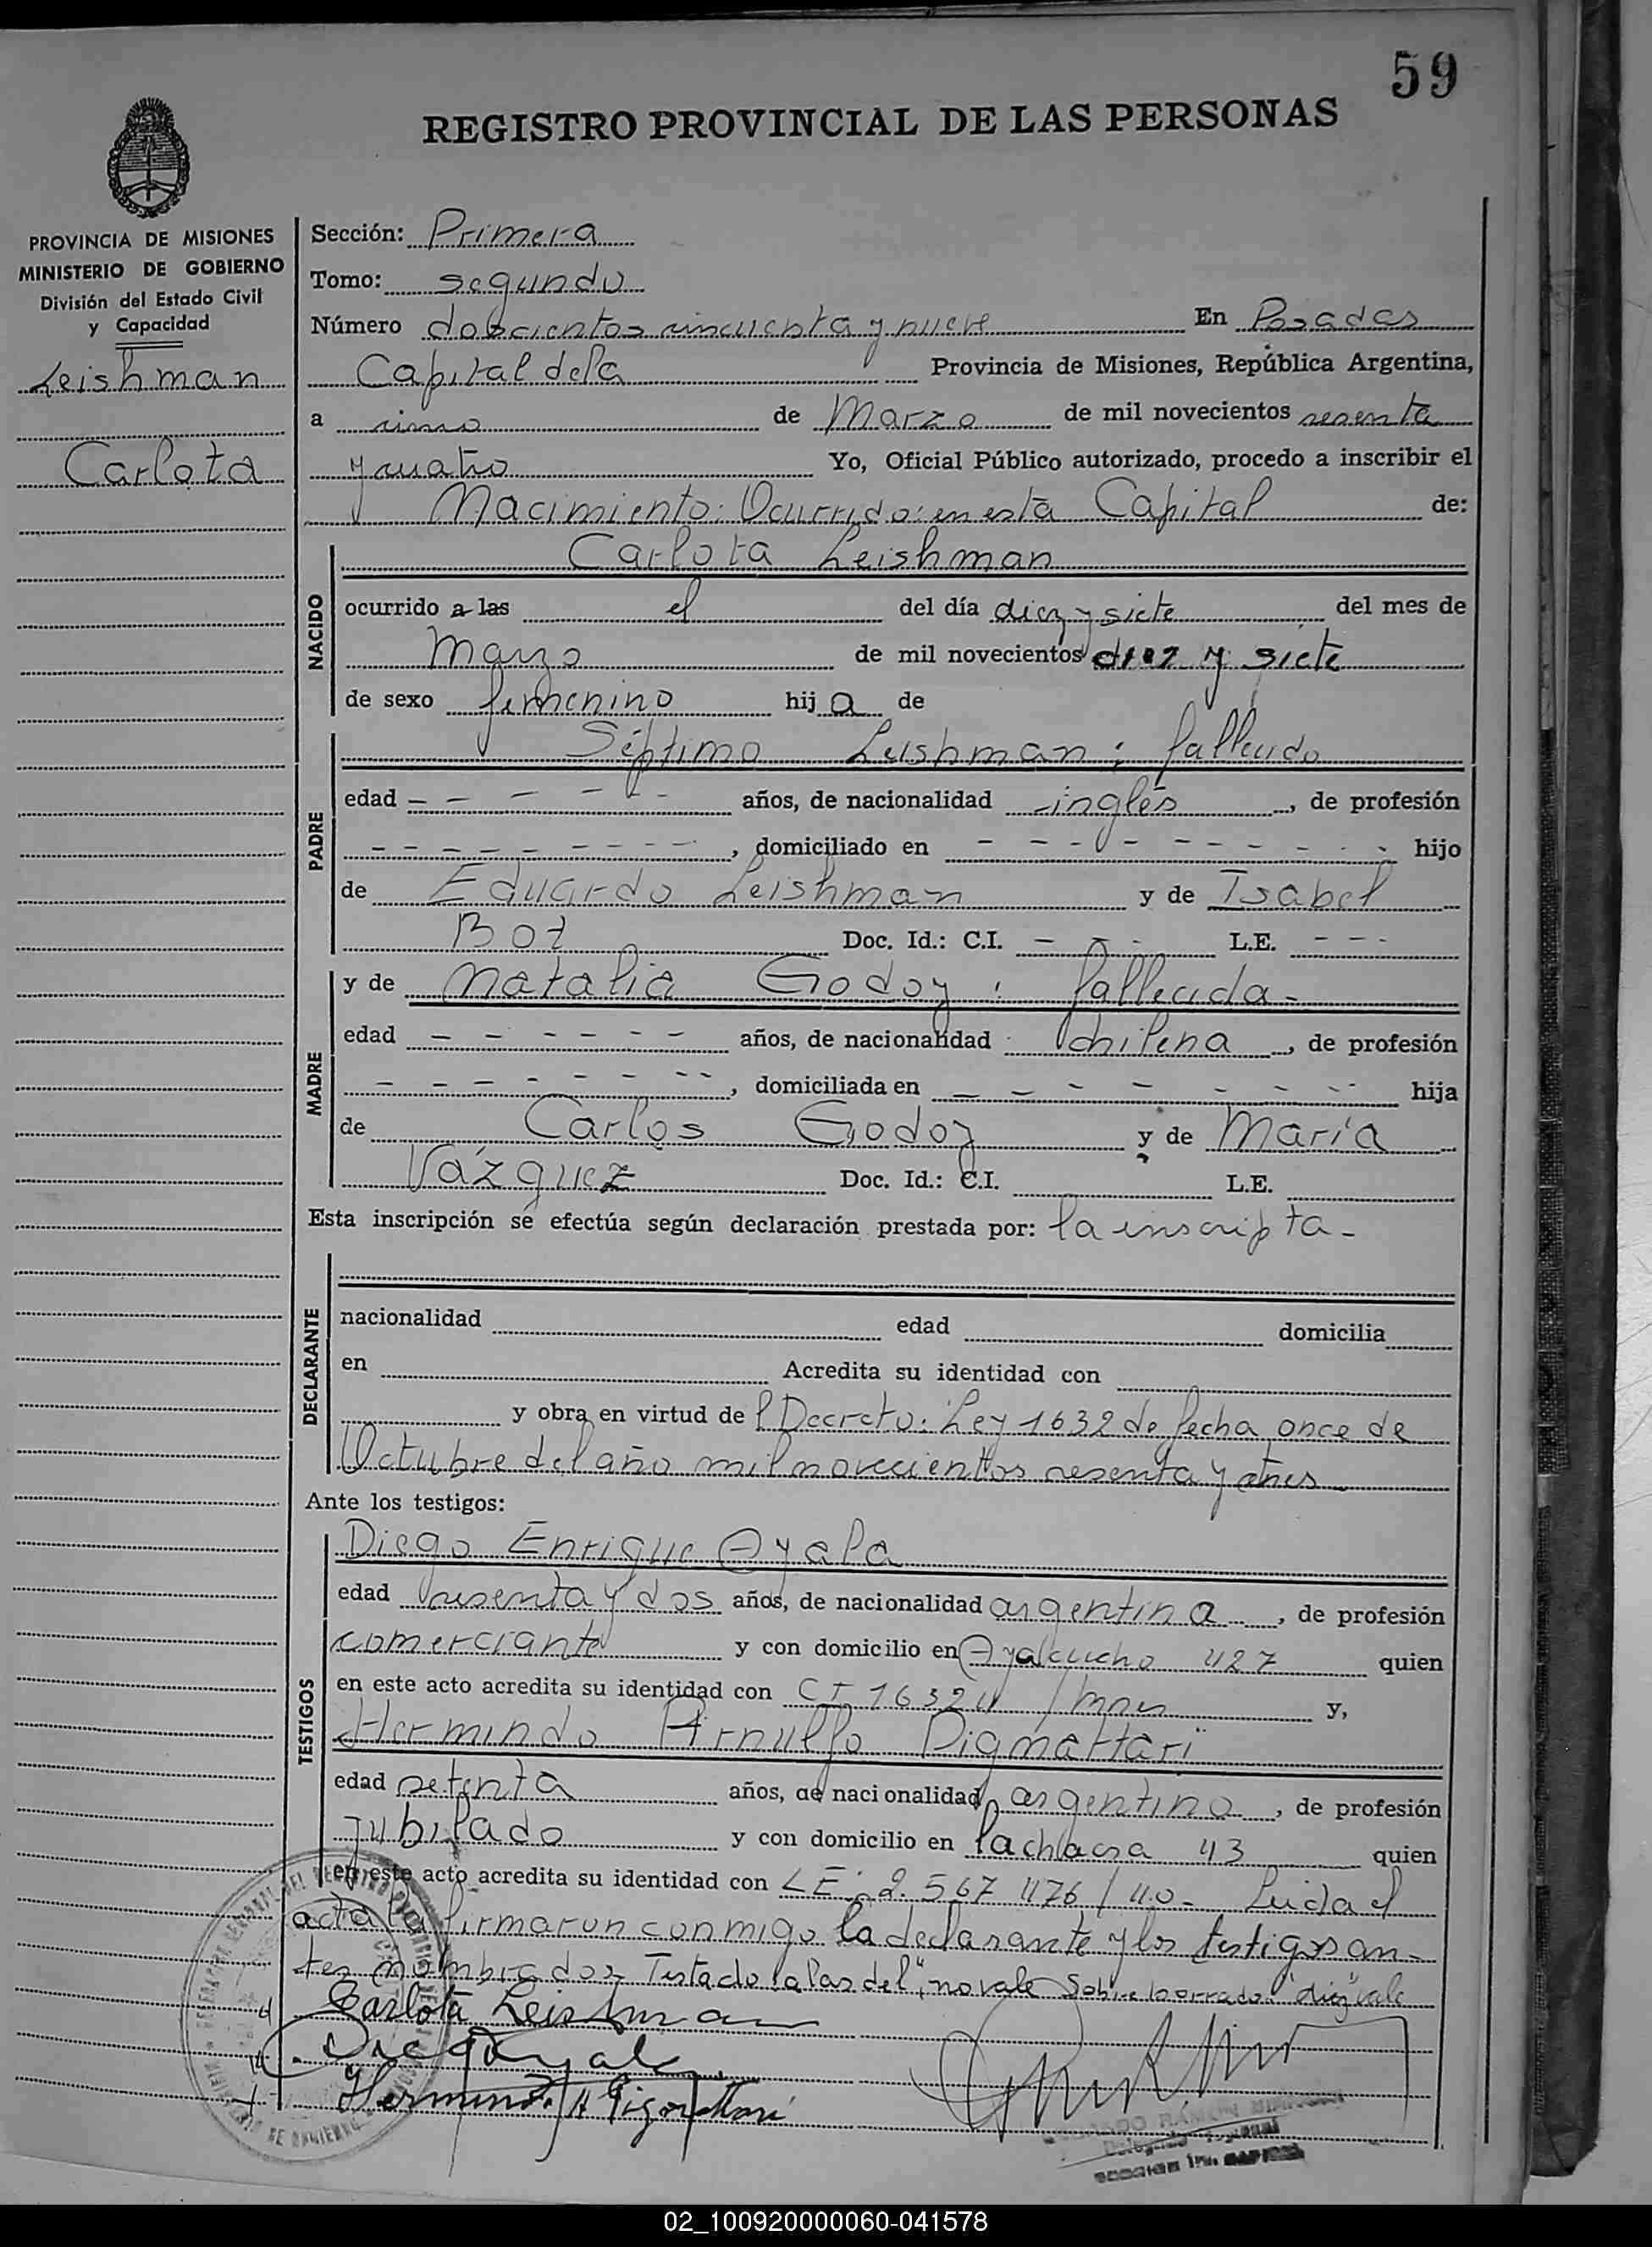 59
REGISTRO PROVINCIAL DE LAS PERSONAS
PROVINCIA DE MISIONES
MINISTERIO DE GOBIERNO
División del Estado Civil
y Capacidad
Leishman
Carlota
Sección: Primera
Tomo: segundo
Número doscientos cincuenta y nueve En Posadas
Capital de la Provincia de Misiones, República Argentina,
a cinco de Marzo de mil novecientos sesenta
y cuatro Yo, Oficial Público autorizado, procedo a inscribir el
Nacimiento: Ocurrido: en esta Capital de:
NACIDO
Carlota Leishman
ocurrido a las el del día diez y siete del mes de
marzo de mil novecientos diez y siete
de sexo femenino hij a de
PADRE
Séptimo Leishman; fallecido
edad - - - - - - años, de nacionalidad inglés, de profesión
- - - - - - - - -, domiciliado en - - - - - - - - - - hijo
de Eduardo Leishman y de Isabel
Doc. Id.: C.I. - - - L.E. - - -
MADRE
y de Natalia Godoy; fallecida-
edad - - - - - - años, de nacionalidad chilena, de profesión
- - - - - - - -, domiciliada en - - - - - - - - hija
de Carlos Godoy y de María
Vázquez Doc. Id.: C.I. L.E.
Esta inscripción se efectúa según declaración prestada por: la inscripta-
DECLARANTE
nacionalidad edad domicilia
en Acredita su identidad con
y obra en virtud de l Decreto: Ley 1632 de fecha once de
Octubre del año mil novecientos sesenta y tres
Ante los testigos:
TESTIGOS
Diego Enrique Ayala
edad sesenta y dos años, de nacionalidad argentina, de profesión
comerciante y con domicilio en Ayacucho 427 quien
en este acto acredita su identidad con CI 16324 / mnes y,
Hermindo Arnulfo Pignattari
edad setenta años, de nacionalidad argentino, de profesión
jubilado y con domicilio en la chacra 43 quien
en este acto acredita su identidad con LE: 2.567476/40- Leida el
acta la firmaron conmigo la declarante y los testigos an-
tes nombrados Testado "a las del" no vale Sobre borrado: "diez" vale
Carlota Leishman
Diego Ayala
Hermindo A Pignattari
02_100920000060-041578